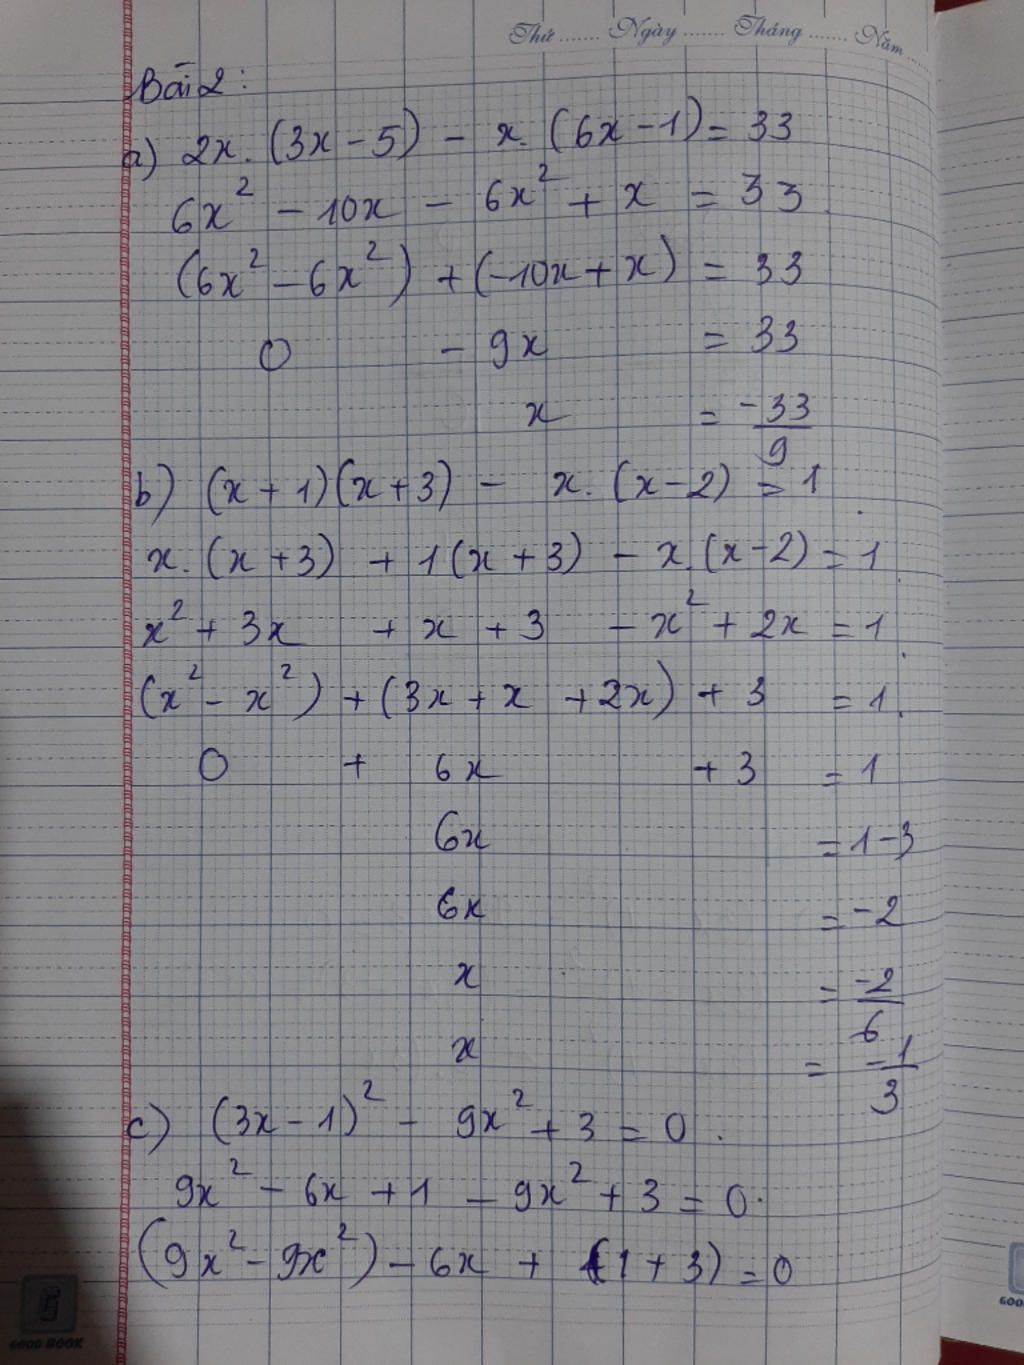 Thứ ....... Ngày ....... Tháng ....... Năm ....
Bài 2:
a) 2x.(3x-5) - x.(6x-1) = 33
6x² - 10x - 6x² + x = 33
(6x² - 6x²) + (-10x + x) = 33
0 - 9x = 33
x = -33/9
b) (x+1)(x+3) - x.(x-2) = 1
x.(x+3) + 1(x+3) - x.(x-2) = 1
x² + 3x + x + 3 - x² + 2x = 1
(x² - x²) + (3x + x + 2x) + 3 = 1
0 + 6x + 3 = 1
6x = 1-3
6x = -2
x = -2/6
x = -1/3
c) (3x-1)² - 9x² + 3 = 0.
9x² - 6x + 1 - 9x² + 3 = 0.
(9x² - 9x²) - 6x + (1+3) = 0
GOOD BOOK
GOO